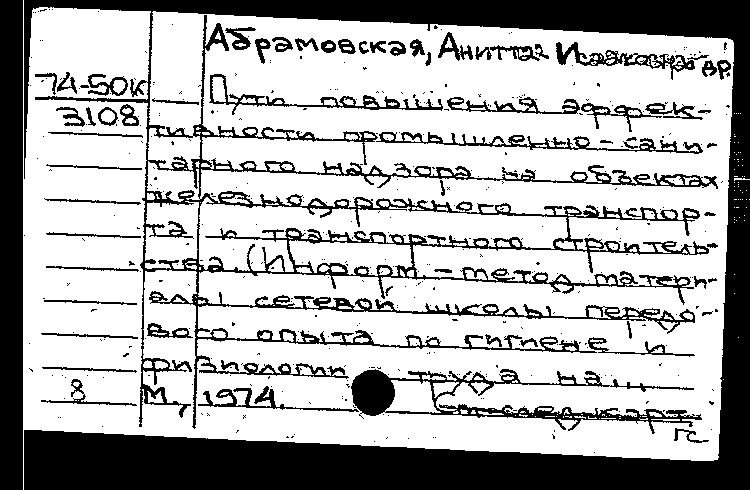 Абрамовская, Анитта Исааковна др.
74-50к
3108
Пути повышения эффек-
тивности промышленно-сани-
тарного надзора на объектах
железнодорожного транспор-
та и транспортного строитель-
ства. (Информ.-метод матери-
алы сетевой школы передо-
вого опыта по гигиене и
физиологии труда на...
8 М., 1974.
См след карт.
гс